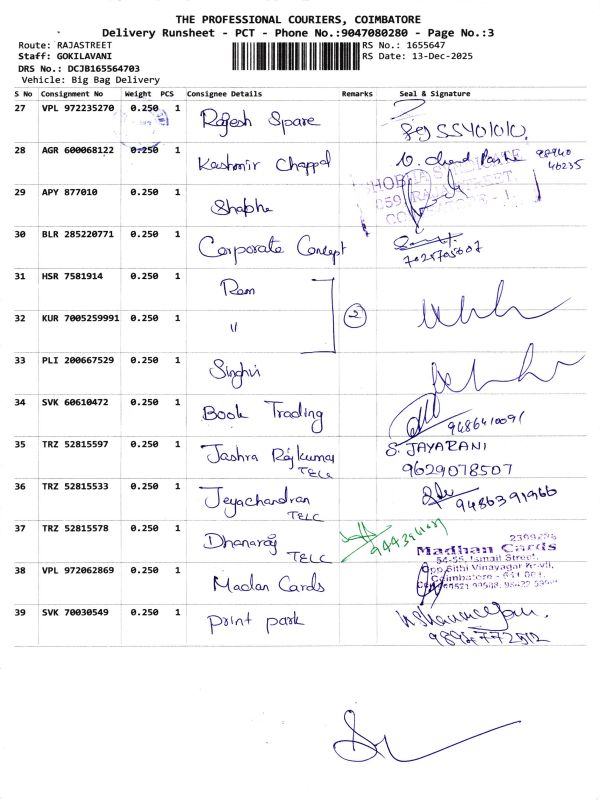 THE PROFESSIONAL COURIERS, COIMBATORE
Delivery Runsheet - PCT - Phone No.:9047080280 - Page No.:3
Route: RAJASTREET
Staff: GOKILAVANI
DRS No.: DCJB165564703
Vehicle: Big Bag Delivery
RS No.: 1655647
RS Date: 13-Dec-2025
S No Consignment No Weight PCS Consignee Details Remarks Seal & Signature
27 VPL 972235270 0.250 1 Rajesh Spare
28 AGR 600068122 0.250 1 Kashmir Chappal 98940
40235
29 APY 877010 0.250 1
RAJA STREET
30 BLR 285220771 0.250 1 Corporate Concept
31 HSR 7581914 0.250 1 Ram
32 KUR 7005259991 0.250 1 " 2
33 PLI 200667529 0.250 1 Singhvi
34 SVK 60610472 0.250 1 Book Trading
35 TRZ 52815597 0.250 1 Jashra Rajkumar TELC S. JAYARANI
9629078507
36 TRZ 52815533 0.250 1 Jeyachandran TELC 9486391966
37 TRZ 52815578 0.250 1 Dhanaraj TELC
Madhan Cards
54-55, Ismail Street,
Opp. Sithi Vinayagar Kovil,
Coimbatore - 641 001.
38 VPL 972062869 0.250 1 Madan Cards
39 SVK 70030549 0.250 1 Print park